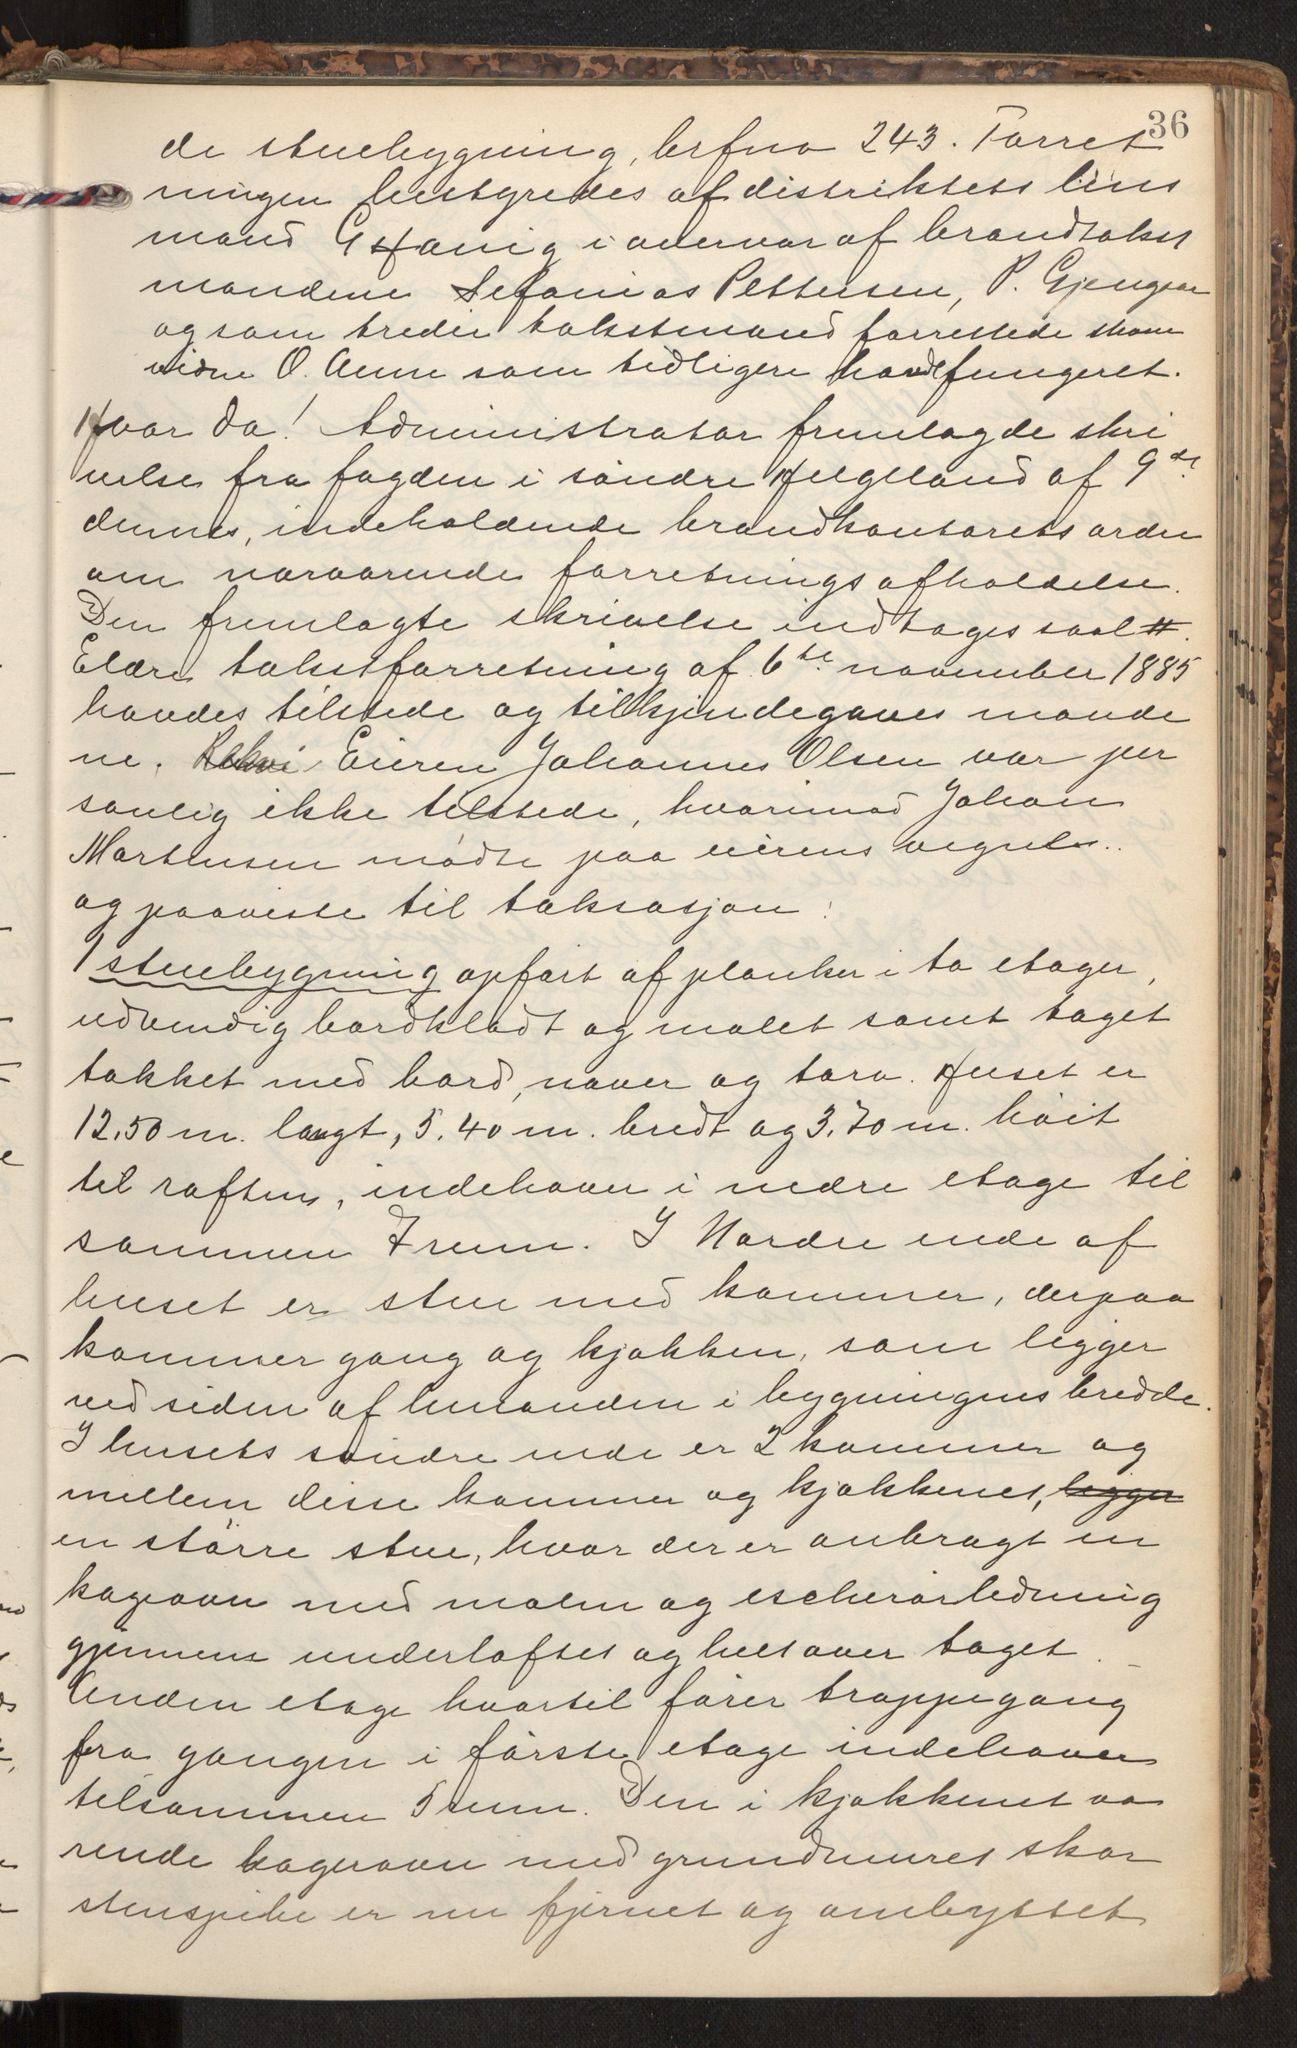 36
de stuebygning, brfno 243. Forret
ningen bestyredes af distriktets lens
mand G Hanig i overvær af brandtakst
mændene Sefanias Pettersen, P. Gjengaar
og som tredie takstmand forrettede skøn
vidne O. Aune som tidligere havde fungeret.
Hvor da! Administrator fremlagde skri
velse fra fogden i søndre Helgeland af 9de
dennes, indeholdende brandkontorets ordre
om nærværende forretnings afholdelse.
Den fremlagte skrivelse indtages saal #.
Eldre takstforretning af 6te november 1885
havdes tilstede og tilkjendegaves mænde
ne. Rekvi Eieren Johannes Olsen var per
sonlig ikke tilstede, hvorimod Johan
Mortensen mødte paa eierens vegne..
og paaviste til taksasjon:
1 stuebygning opført af planker i to etager,
udvendig bordklædt og malet samt taget
tækket med bord, næver og torv. Huset er
12.50 m. langt, 5.40 m. bredt og 3.70 m. høit
til raften, indehaver i nedre etage til
sammen 7 rum. I Nordre ende af
huset er stue med kammer, derpaa
kammer gang og kjøkken, som ligger
ved siden af hinanden i bygningens bredde.
I husets søndre ende er 2 kammer og
mellem disse kammer og kjøkkenet, ligger
en større stue, hvor der er anbragt en
kageovn med malm og escherørledning
gjennem underloftet og helt over taget.
Anden etage hvortil fører trappegang
fra gangen i første etage indehaver
tilsammen 5 rum. Den i kjøkkenet væ
rende kageovn med grundmuret skor
stenspibe er nu fjernet og ombyttet